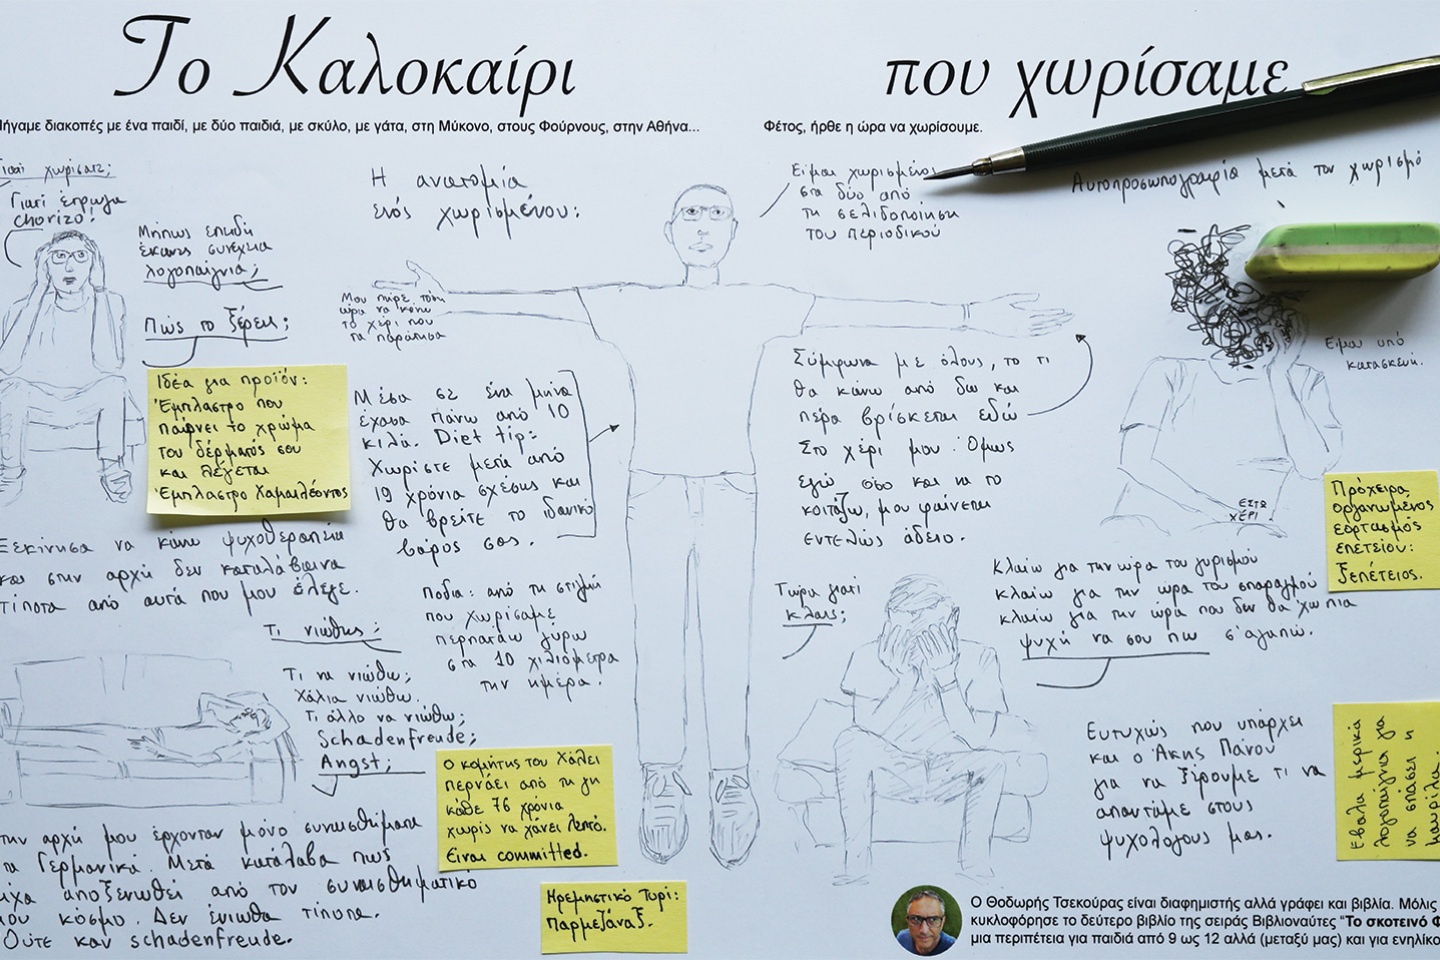 Το Καλοκαίρι που χωρίσαμε
Πήγαμε διακοπές με ένα παιδί, με δύο παιδιά, με σκύλο, με γάτα, στη Μύκονο, στους Φούρνους, στην Αθήνα...
Φέτος, ήρθε η ώρα να χωρίσουμε.
Γιατί χωρίσατε;
Γιατί έτρωγα
chorizo!
Μήπως επειδή
έκανες συνέχεια
λογοπαίγνια;
Πώς το ξέρεις;
Ιδέα για προϊόν:
Έμπλαστρο που
παίρνει το χρώμα
του δέρματός σου
και λέγεται
Έμπλαστρο Χαμαιλέοντος
Ξεκίνησα να κάνω ψυχοθεραπεία
και στην αρχή δεν καταλάβαινα
τίποτα από αυτά που μου έλεγε.
Τι νιώθεις;
Τι να νιώθω;
Χάλια νιώθω.
Τι άλλο να νιώθω;
Schadenfreude;
Angst;
Στην αρχή μου έρχονταν μόνο συναισθήματα
στα Γερμανικά. Μετά κατάλαβα πως
είχα αποξενωθεί από τον συναισθηματικό
μου κόσμο. Δεν ένιωθα τίποτα.
Ούτε καν schadenfreude.
Η ανατομία
ενός χωρισμένου:
Μου πήρε τόση
ώρα να κάνω
το χέρι που
τα παράτησα
Μέσα σε ένα μήνα
έχασα πάνω από 10
κιλά. Diet tip:
Χωρίστε μετά από
19 χρόνια σχέσης και
θα βρείτε το ιδανικό
βάρος σας.
Πόδια: από τη στιγμή
που χωρίσαμε
περπατάω γύρω
στα 10 χιλιόμετρα
την ημέρα.
Ο κομήτης του Χάλεϊ
περνάει από τη γη
κάθε 76 χρόνια
χωρίς να χάνει λεπτό.
Είναι committed.
Ηρεμιστικό Τυρί:
Παρμεζάναξ.
Είμαι χωρισμένος
στα δύο από
τη σελιδοποίηση
του περιοδικού
Σύμφωνα με όλους, το τι
θα κάνω από δω και
πέρα βρίσκεται εδώ
Στο χέρι μου. Όμως
εγώ όσο και να το
κοιτάζω, μου φαίνεται
εντελώς άδειο.
Αυτοπροσωπογραφία μετά τον χωρισμό
Είμαι υπό
κατασκευή.
ΕΣΤΩ
ΧΕΡΙ.
Πρόχειρα
οργανωμένος
εορτασμός
επετείου:
Ξεπέτειος.
Τώρα γιατί
κλαις;
Κλαίω για την ώρα του γυρισμού
κλαίω για την ώρα του σπαραγμού
κλαίω για την ώρα που δεν θα 'χω πια
ψυχή να σου πω σ' αγαπώ.
Ευτυχώς που υπάρχει
και ο Άκης Πάνου
για να ξέρουμε τι να
απαντάμε στους
ψυχολόγους μας.
Έβαλα μερικά
λογοπαίγνια για
να σπάσει η
μαυρίλα.
Ο Θοδωρής Τσεκούρας είναι διαφημιστής αλλά γράφει και βιβλία. Μόλις
κυκλοφόρησε το δεύτερο βιβλίο της σειράς Βιβλιοναύτες "Το σκοτεινό Φ
μια περιπέτεια για παιδιά από 9 ως 12 αλλά (μεταξύ μας) και για ενηλίκο